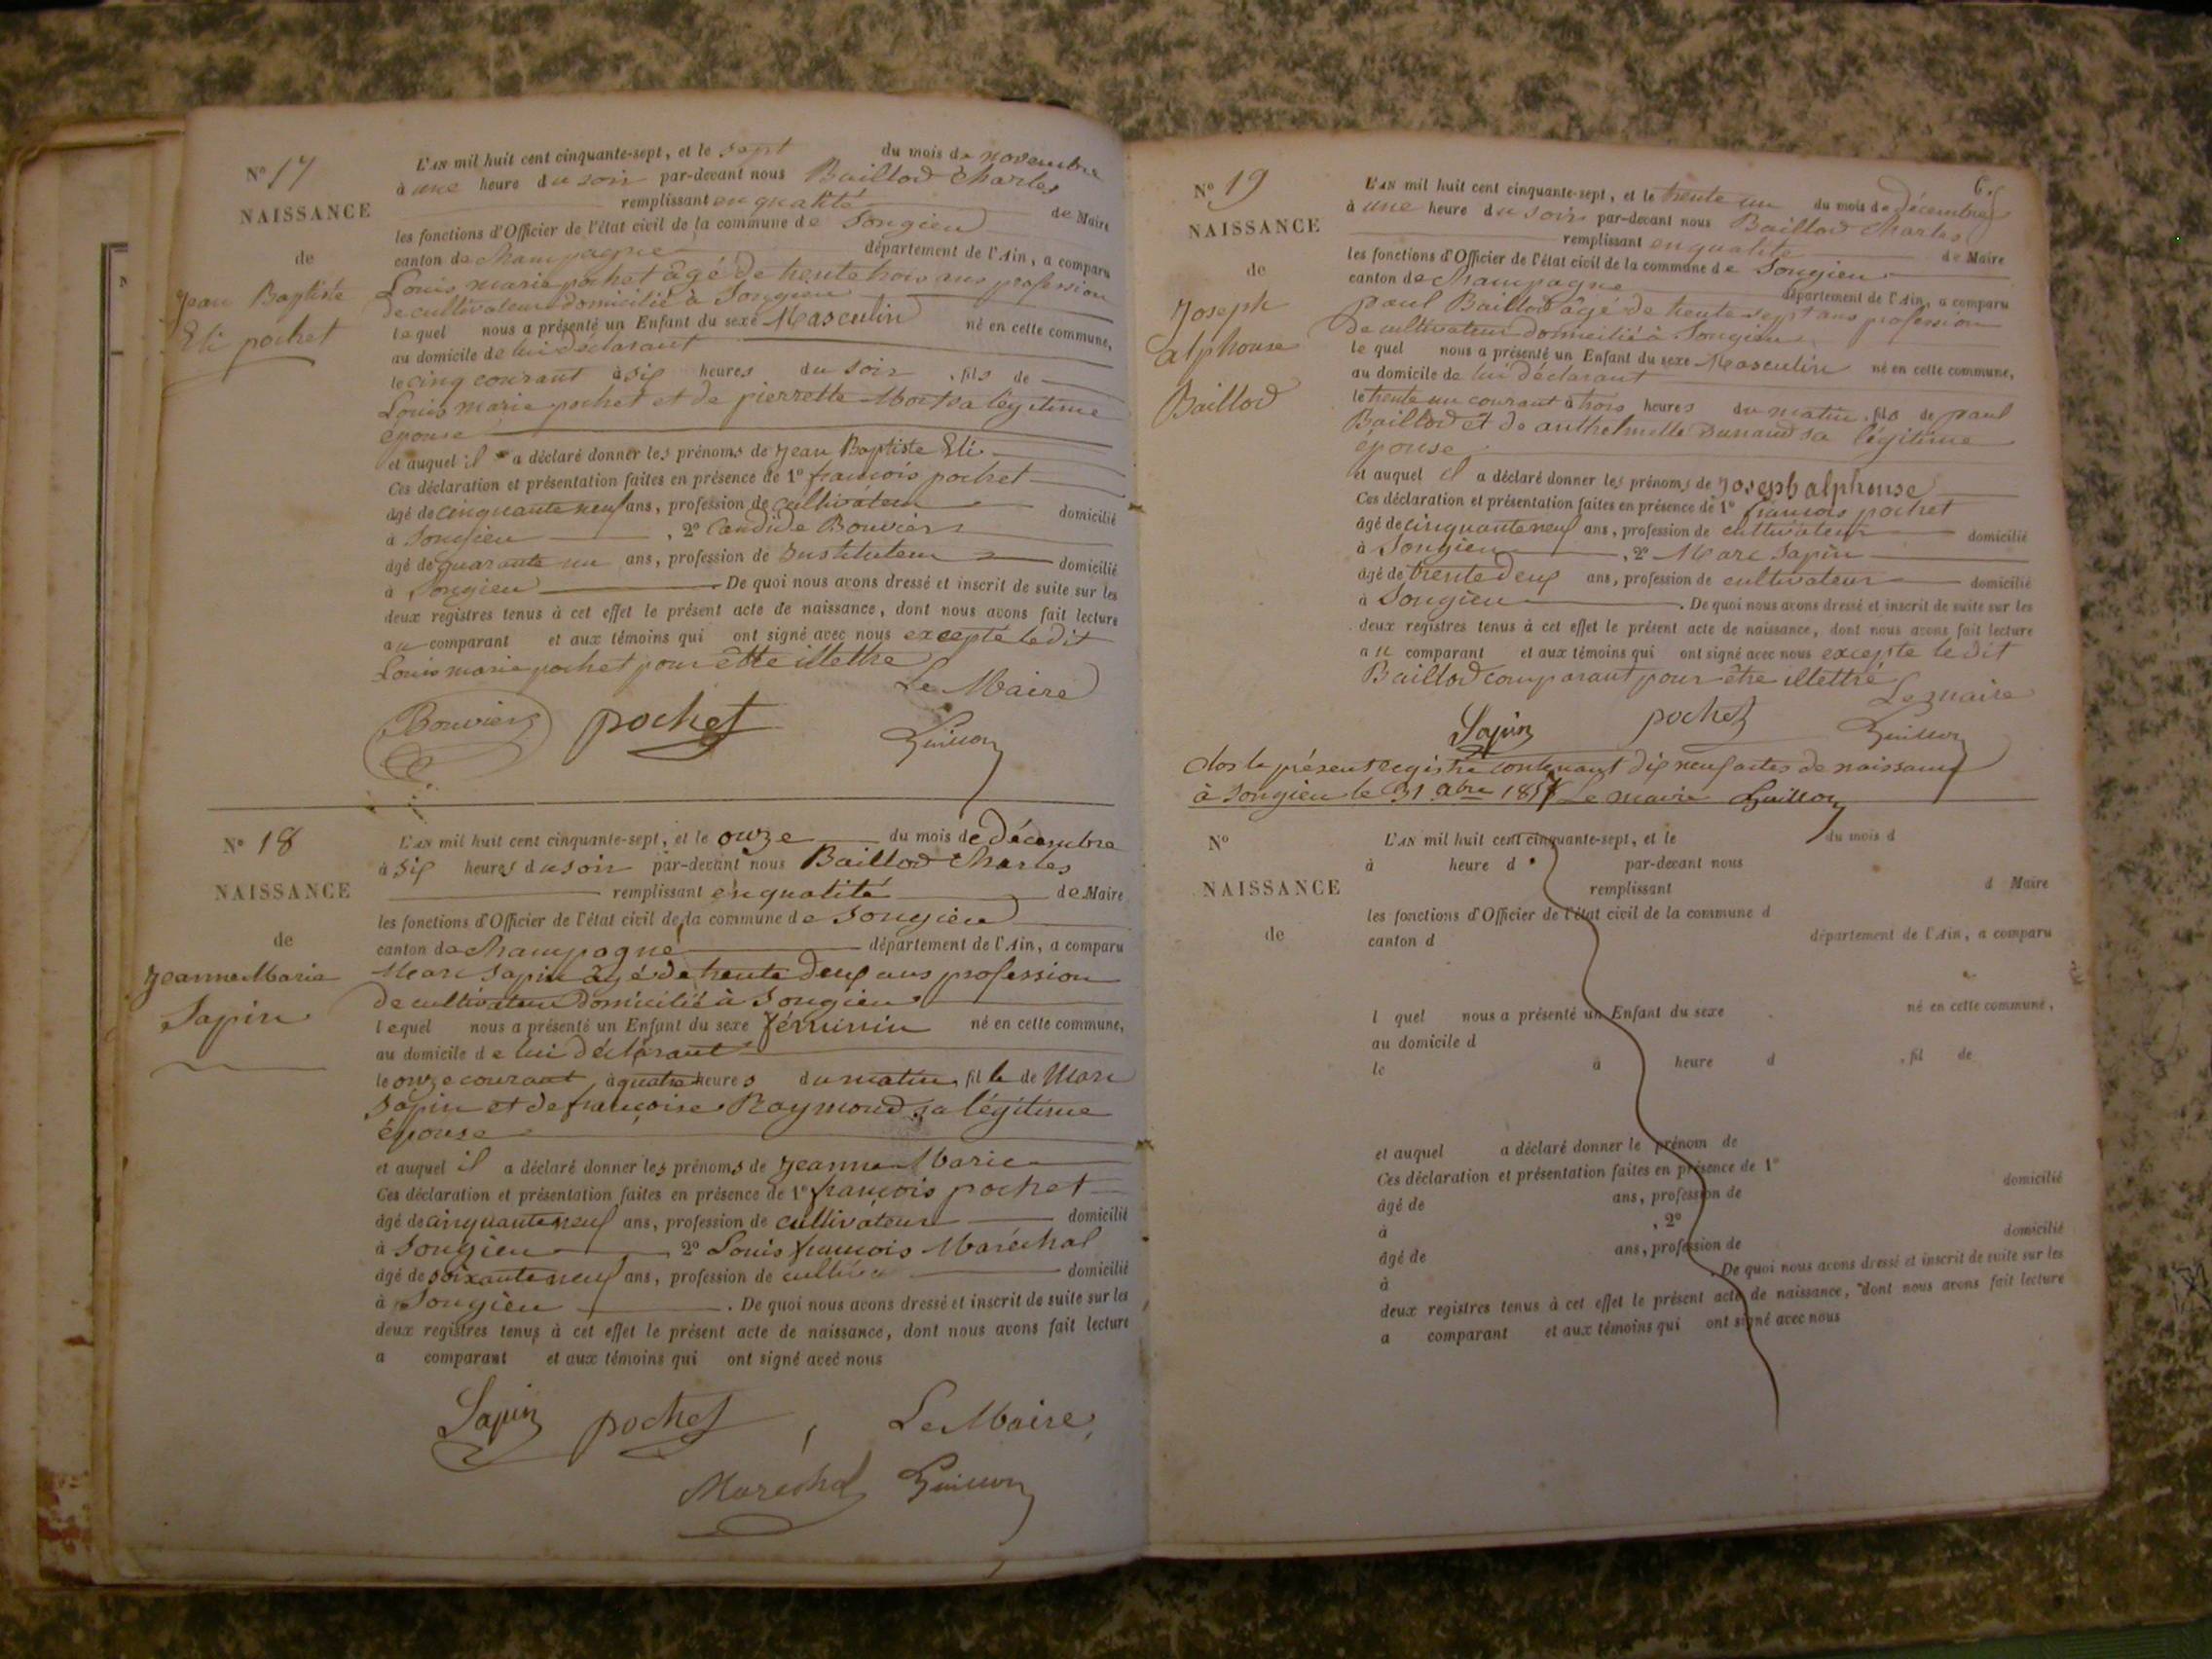 N° 17
NAISSANCE
de
Jean Baptiste
Eli pochet
L'AN mil huit cent cinquante-sept, et le sept du mois de novembre
à une heure du soir par-devant nous Baillod Charles
remplissant en qualité de Maire
les fonctions d'Officier de l'état civil de la commune de Songieu
canton de Champagne département de l'Ain, a comparu
Louis marie pochet âgé de trente trois ans profession
de cultivateur domicilié à Songieu
lequel nous a présenté un Enfant du sexe Masculin né en cette commune,
au domicile de lui déclarant
le cinq courant à six heures du soir, fils de
Louis marie pochet et de pierrette sa légitime
épouse
et auquel il a déclaré donner les prénoms de Jean Baptiste Eli
Ces déclaration et présentation faites en présence de 1° françois pochet
âgé de cinquante neuf ans, profession de cultivateur domicilié
à Songieu, 2° Candide Bouvier
âgé de quarante un ans, profession de Instituteur domicilié
à Songieu. De quoi nous avons dressé et inscrit de suite sur les
deux registres tenus à cet effet le présent acte de naissance, dont nous avons fait lecture
au comparant et aux témoins qui ont signé avec nous excepté ledit
Louis marie pochet pour être illettré
Le Maire
Bouvier pochet
N° 18
NAISSANCE
de
Jeanne Marie
Sapin
L'AN mil huit cent cinquante-sept, et le onze du mois de Décembre
à six heures du soir par-devant nous Baillod Charles
remplissant en qualité de Maire
les fonctions d'Officier de l'état civil de la commune de Songieu
canton de Champagne département de l'Ain, a comparu
Marc Sapin âgé de trente deux ans profession
de cultivateur domicilié à Songieu
lequel nous a présenté un Enfant du sexe féminin né en cette commune,
au domicile de lui déclarant
le onze courant, à quatre heures du matin, fille de Marc
Sapin et de françoise Raymond sa légitime
épouse
et auquel il a déclaré donner les prénoms de Jeanne Marie
Ces déclaration et présentation faites en présence de 1° françois pochet
âgé de cinquante neuf ans, profession de cultivateur domicilié
à Songieu, 2° Louis françois Maréchal
âgé de soixante neuf ans, profession de domicilié
à Songieu. De quoi nous avons dressé et inscrit de suite sur les
deux registres tenus à cet effet le présent acte de naissance, dont nous avons fait lecture
a comparant et aux témoins qui ont signé avec nous
Sapin pochet Le Maire
Maréchal
6.
N° 19
NAISSANCE
de
Joseph
alphonse
Baillod
L'AN mil huit cent cinquante-sept, et le trente un du mois de décembre
à une heure du soir par-devant nous Baillod Charles
remplissant en qualité de Maire
les fonctions d'Officier de l'état civil de la commune de Songieu
canton de Champagne département de l'Ain, a comparu
paul Baillod âgé de trente sept ans profession
de cultivateur domicilié à Songieu
le quel nous a présenté un Enfant du sexe Masculin né en cette commune,
au domicile de lui déclarant
le trente un courant à trois heures du matin, fils de paul
Baillod et de anthelmette Dunand sa légitime
épouse
et auquel il a déclaré donner les prénoms de Joseph alphonse
Ces déclaration et présentation faites en présence de 1° françois pochet
âgé de cinquante neuf ans, profession de cultivateur domicilié
à Songieu, 2° Marc Sapin
âgé de trente deux ans, profession de cultivateur domicilié
à Songieu. De quoi nous avons dressé et inscrit de suite sur les
deux registres tenus à cet effet le présent acte de naissance, dont nous avons fait lecture
au comparant et aux témoins qui ont signé avec nous excepté ledit
Baillod comparant pour être illettré
Le maire
Sapin pochet
clos le présent registre contenant dix neuf actes de naissance
à Songieu le 31 xbre 1857 Le maire
N°
NAISSANCE
de
L'AN mil huit cent cinquante-sept, et le du mois d
à heure d par-devant nous
remplissant d Maire
les fonctions d'Officier de l'état civil de la commune d
canton d département de l'Ain, a comparu
l quel nous a présenté un Enfant du sexe né en cette commune,
au domicile d
le à heure d, fil de
et auquel a déclaré donner le prénom de
Ces déclaration et présentation faites en présence de 1°
âgé de ans, profession de domicilié
à, 2°
âgé de ans, profession de domicilié
à. De quoi nous avons dressé et inscrit de suite sur les
deux registres tenus à cet effet le présent acte de naissance, dont nous avons fait lecture
a comparant et aux témoins qui ont signé avec nous